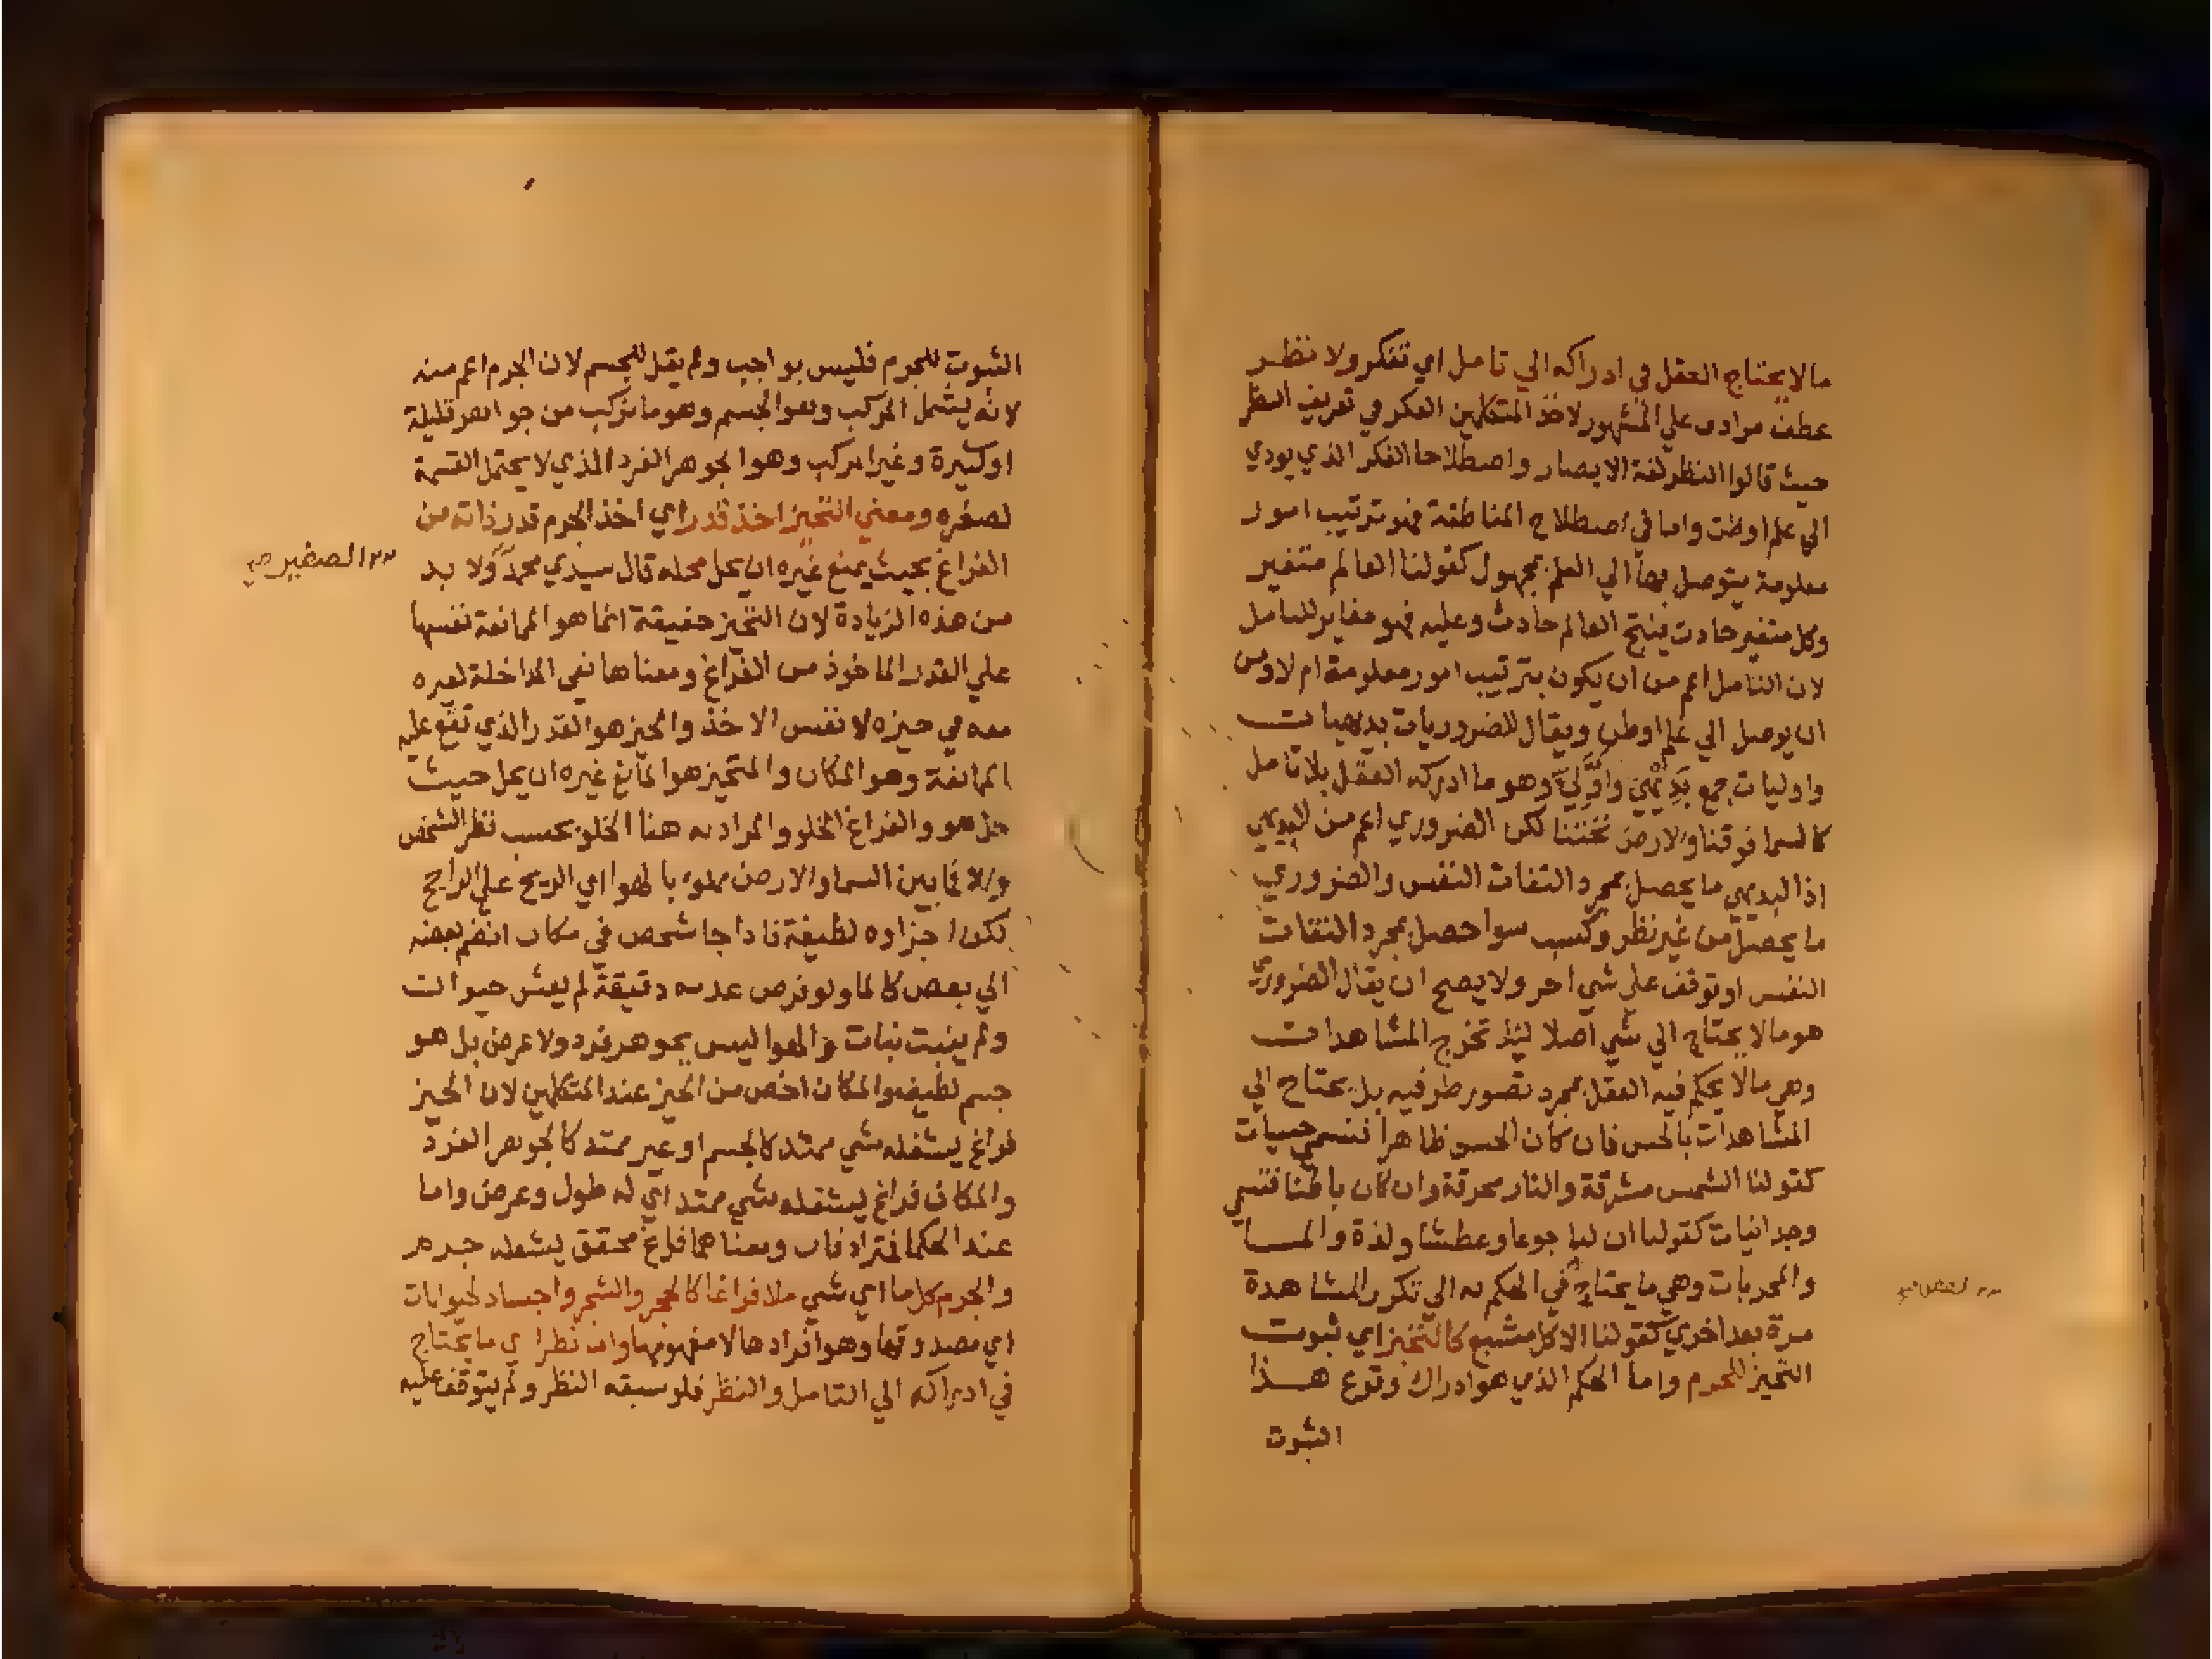 مالا يحتاج العقل في ادراكه الي تامل اي تفكر ولا نظر
عطف مرادف علي المشهور لاخذ المتكلمين الفكر في تعريف النظر
حيث قالوا النظر لغة الابصار واصطلاحا الفكر الذي يودي
الي علم او ظن واما في اصطلاح المناطقة فهو ترتيب امور
معلومة يتوصل بها الي العلم بمجهول كقولنا العالم متغير
وكل متغير حادث ينتج العالم حادث وعليه فهو مغاير للتامل
لان التامل اعم من ان يكون بترتيب امور معلومة ام لا ومن
ان يوصل الي علم او ظن ويقال للضروريات بديهيات
واوليات جمع بديهي واولي وهو ما ادركه العقل بلا تامل
كالسما فوقنا والارض تحتنا لكن الضروري اعم من البديهي
اذ البديهي ما يحصل بمجرد التفات النفس والضروري
ما يحصل من غير نظر وكسب سوا حصل بمجرد التفات
النفس او توقف علي شي اخر ولا يصح ان يقال الضروري
هو مالا يحتاج الي شي اصلا ليلا تخرج المشاهدات
وهي مالا يحكم فيه العقل بمجرد تصور طرفيه بل يحتاج الي
المشاهدات بالحس فان كان الحس ظاهرا فتسمي حسيات
كقولنا الشمس مشرقة والنار محرقة وان كان باطنا فتسمي
وجدانيات كقولنا ان لنا جوعا وعطشا ولذة والما
والمجربات وهي ما يحتاج في الحكم به الي تكرر المشاهدة
مرة بعد اخري كقولنا الاكل مشبع كالتحيز اي ثبوت
التحيز للجرم واما الحكم الذي هو ادراك وقوع هذا
الثبوت
الثبوت للجرم فليس بواجب ولم يقل للجسم لان الجرم اعم منه
لانه يشمل المركب وهو الجسم وهو ما تركب من جواهر قليلة
او كثيرة وغير المركب وهو الجوهر الفرد الذي لا يحتمل القسمة
لصغره ومعني التحيز اخذ قدر اي اخذ الجرم قدر ذاته من
الفراغ بحيث يمنع غيره ان يحل محله قال سيدي محمد ولا بد
الصغير صح
من هذه الزيادة لان التحيز حقيقة انما هو الممانعة نفسها
علي القدر الماخوذ من الفراغ ومعناها نفي المداخلة لغيره
معه في حيزه لا نفس الاخذ والحيز هو القدر الذي تقع عليه
الممانعة وهو المكان والمتحيز هو المانع غيره ان يحل حيث
حل هو والفراغ الخلو والمراد به هنا الخلو بحسب نظر الشخص
والا فما بين السما والارض مملوء بالهوا اي الريح علي الراجح
لكن اجزاوه لطيفة فاذا جا شخص في مكان انضم بعضه
الي بعض كالما ولو فرض عدمه دقيقة لم يعش حيوان
ولم ينبت نبات والهوا ليس بجوهر فرد ولا عرض بل هو
جسم لطيف والمكان اخص من الحيز عند المتكلمين لان الحيز
فراغ يشغله شي ممتد كالجسم او غير ممتد كالجوهر الفرد
والمكان فراغ يشغله شي ممتد اي له طول وعرض واما
عند الحكما فمترادفان ومعناهما فراغ محقق يشغله جرم
والجرم كل ما اي شي ملا فراغا كالحجر والشجر واجساد الحيوانات
اي مصدوقها وهو افرادها لا مفهومها واما نظرا اي ما يحتاج
في ادراكه الي التامل والنظر فلو سبقه النظر ولم يتوقف عليه